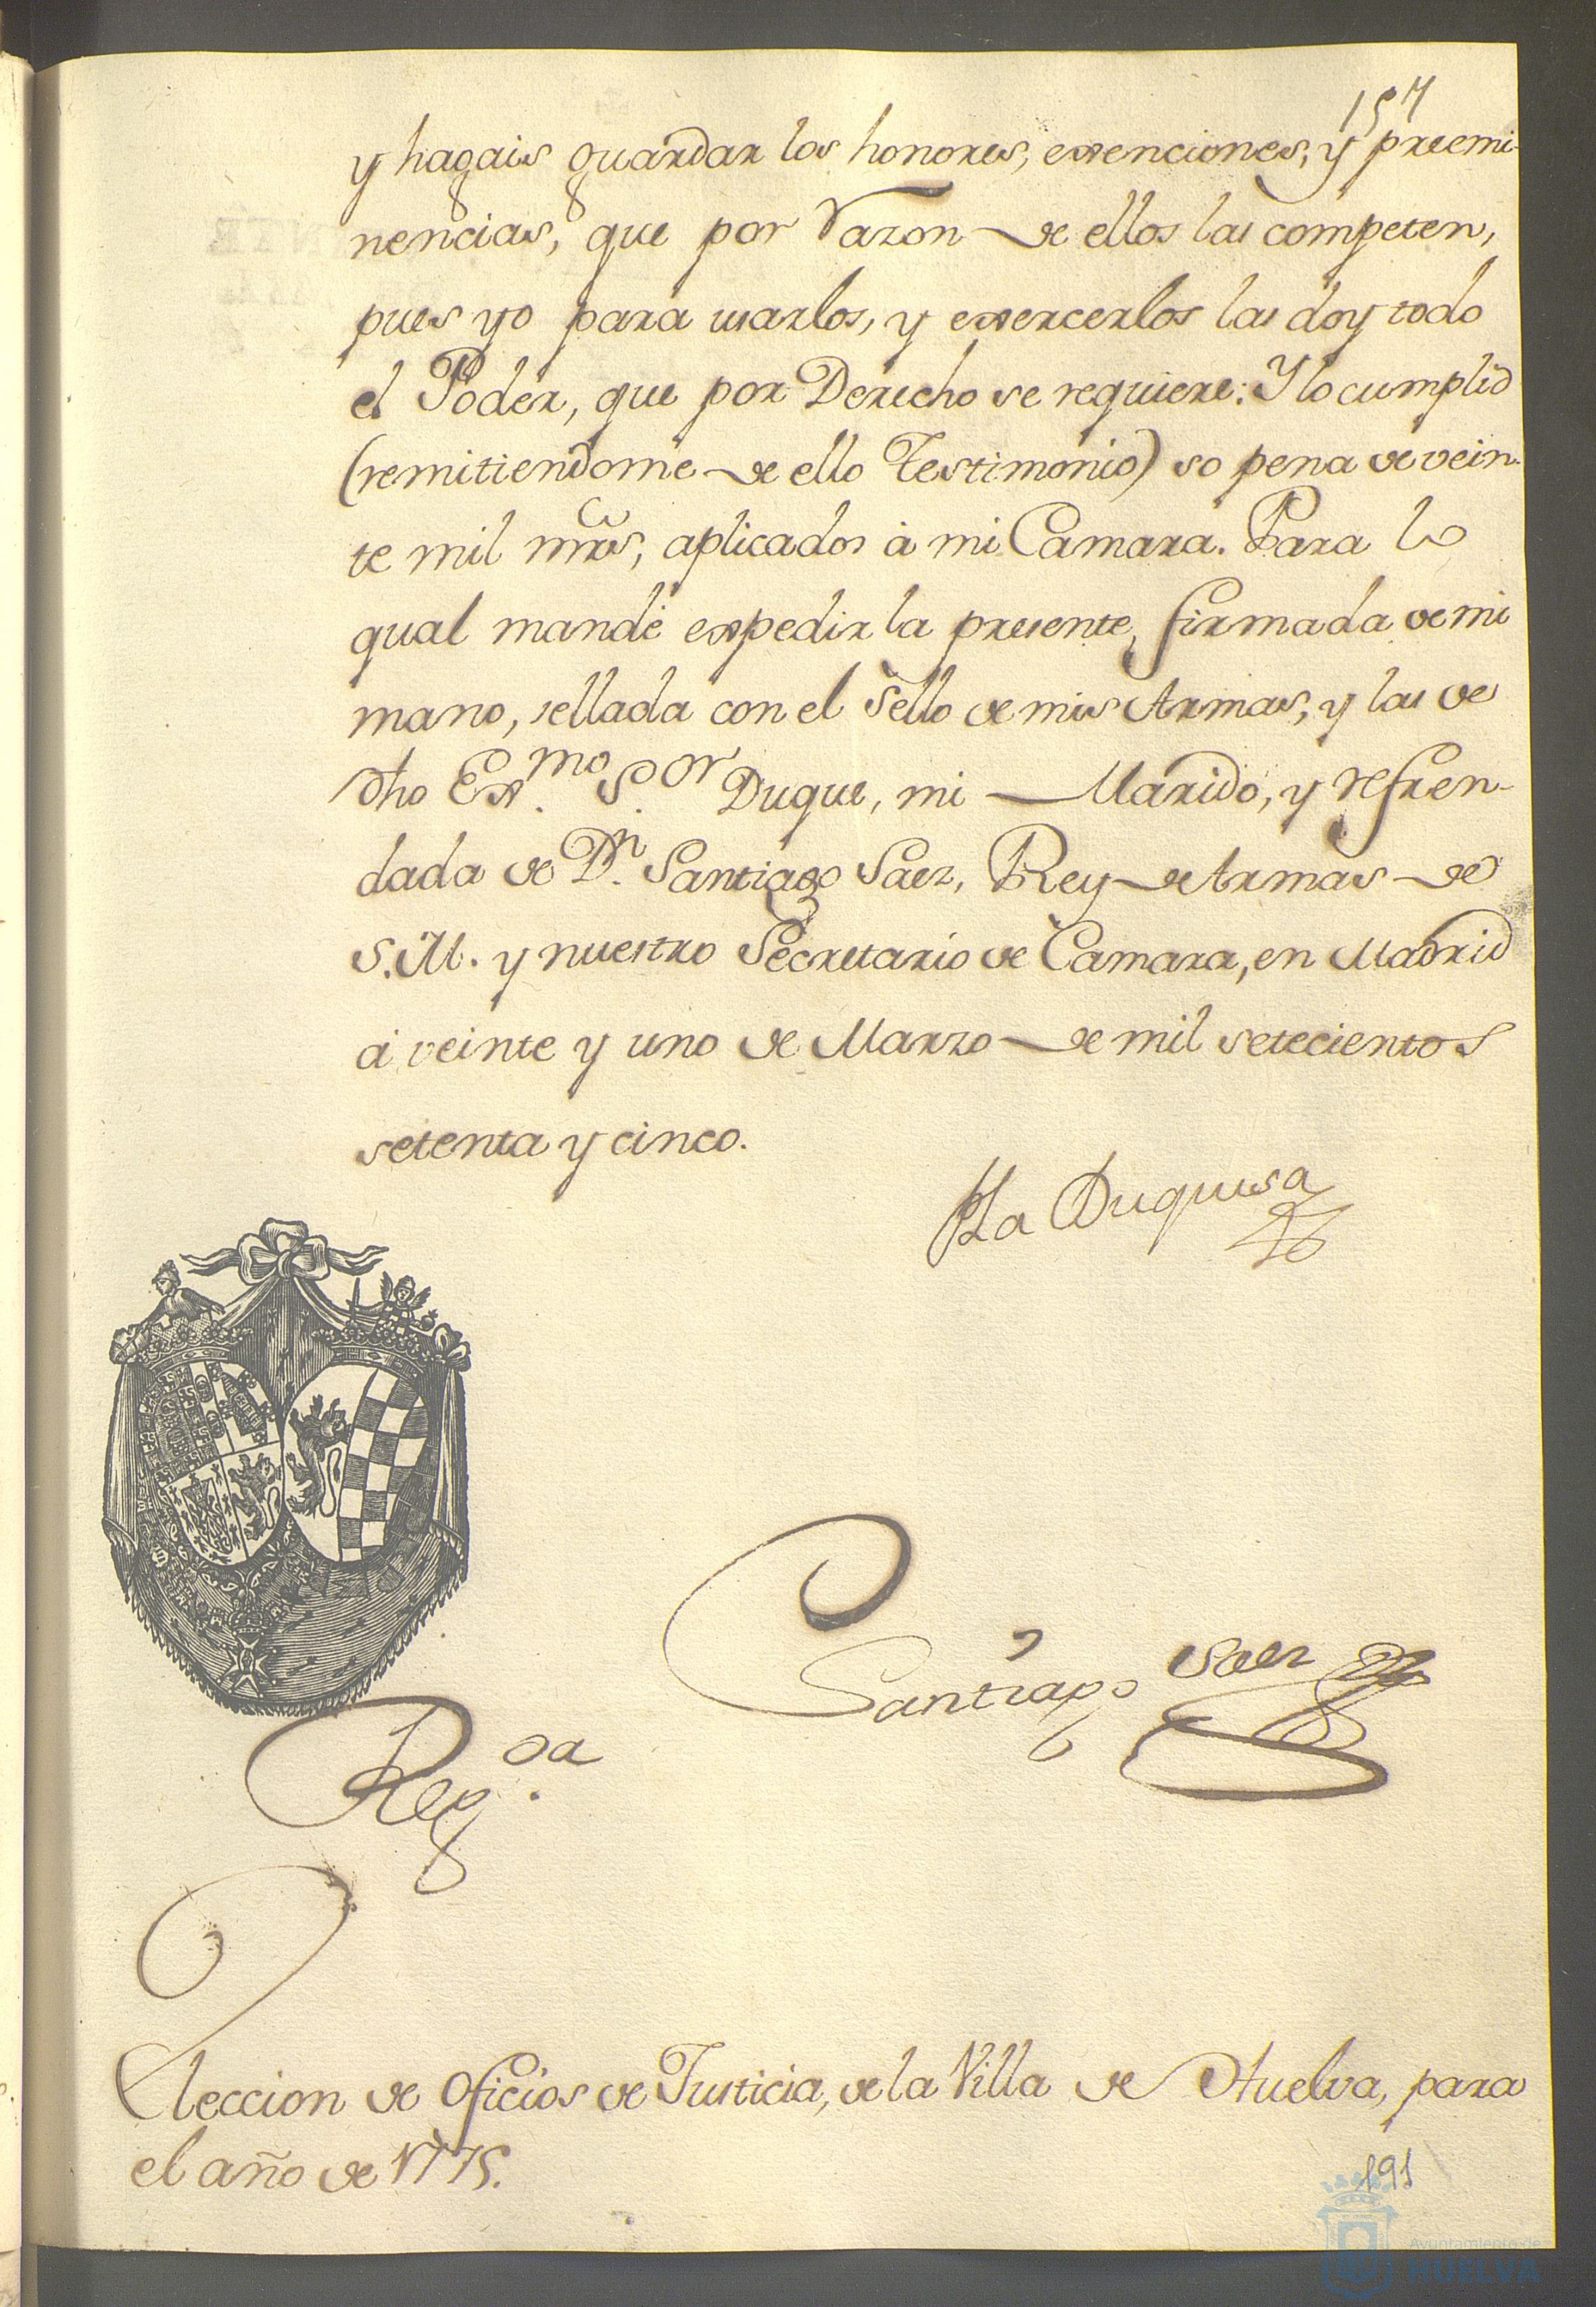 157
y hagais guardar los honores, exenciones, y preemi-
nencias, que por razon de ellos las competen,
pues yo para usarlos, y exercerlos las doy todo
el Poder, que por Derecho se requiere: Y lo cumplid
(remitiendome de ello Testimonio) so pena de vein-
te mil mrs, aplicados à mi Camara. Para lo
qual mandé expedir la presente, firmada de mi
mano, sellada con el Sello de mis Armas, y las de
dho Ex.mo S.or Duque, mi Marido, y refren-
dada de D.n Santiago Saez, Rey de Armas de
S.M. y nuestro Secretario de Camara, en Madrid
à veinte y uno de Marzo de mil setecientos
setenta y cinco.
La Duquesa
Santiago Saez
Reg.da
Eleccion de Oficios de Justicia, de la Villa de Huelva, para
el año de 1775.
191
Ayuntamiento de
HUELVA